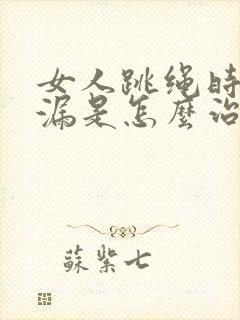 女人跳绳时
漏是怎麼治
蘇紫七